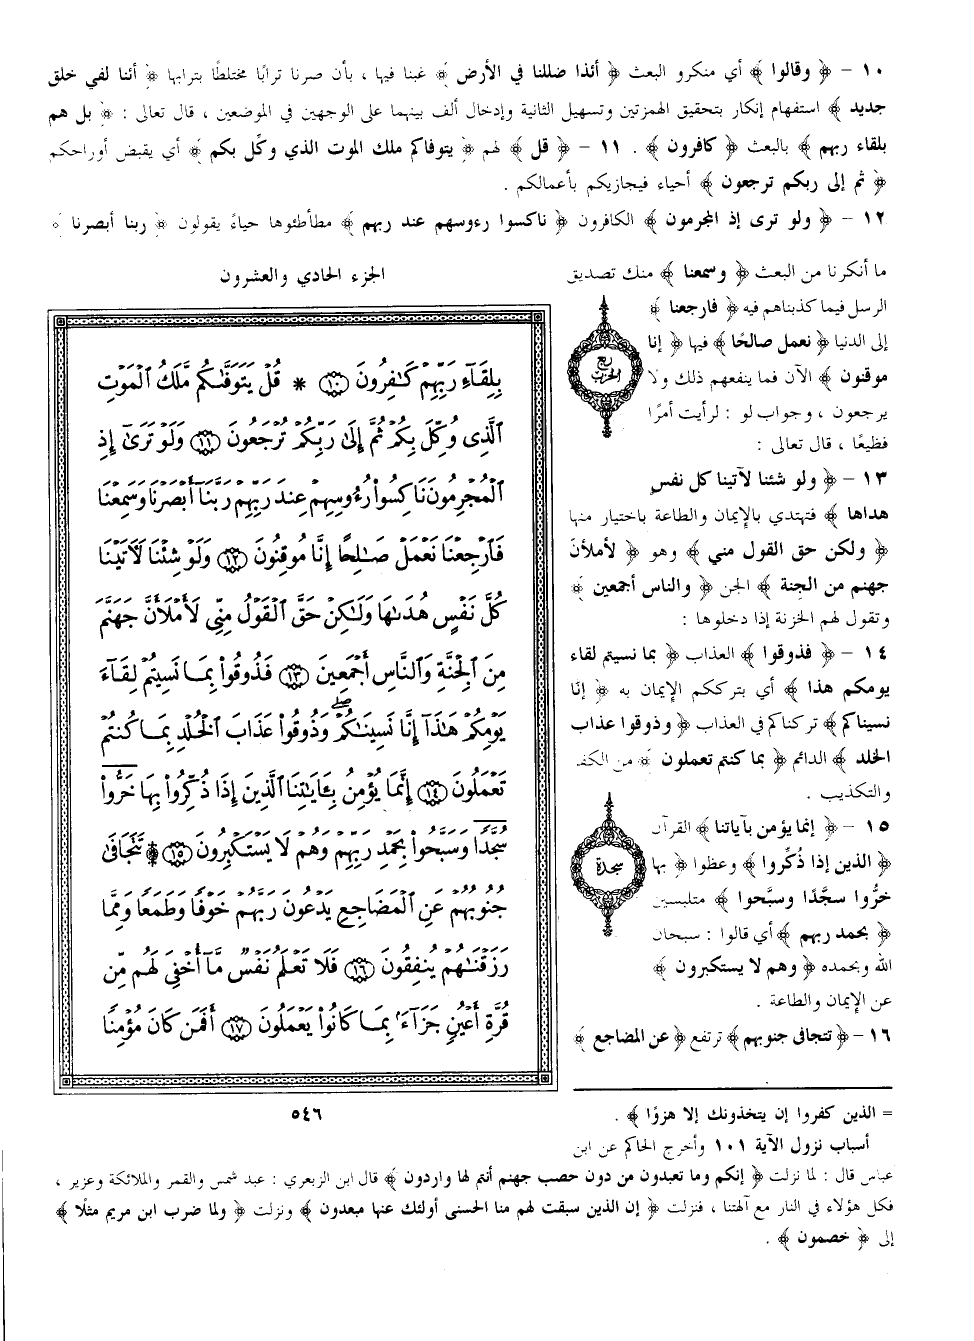 ١٠ - ﴿ وقالوا ﴾ أي منكرو البعث ﴿ أئذا ضللنا في الأرض ﴾ غبنا فيها ، بأن صرنا ترابًا مختلطًا بترابها ﴿ أئنا لفي خلق
جديد ﴾ استفهام إنكار بتحقيق الهمزتين وتسهيل الثانية وإدخال ألف بينهما على الوجهين في الموضعين ، قال تعالى : ﴿ بل هم
بلقاء ربهم ﴾ بالبعث ﴿ كافرون ﴾ . ١١ - ﴿ قل ﴾ لهم ﴿ يتوفاكم ملك الموت الذي وكِّل بكم ﴾ أي يقبض أوراحكم
﴿ ثم إلى ربكم ترجعون ﴾ أحياء فيجازيكم بأعمالكم .
١٢ - ﴿ ولو ترى إذ المجرمون ﴾ الكافرون ﴿ ناكسوا رءوسهم عند ربهم ﴾ مطأطئوها حياءً يقولون ﴿ ربنا أبصرنا ﴾
ما أنكرنا من البعث ﴿ وسمعنا ﴾ منك تصديق
الرسل فيما كذبناهم فيه ﴿ فارجعنا ﴾
إلى الدنيا ﴿ نعمل صالحًا ﴾ فيها ﴿ إنا
موقنون ﴾ الآن فما ينفعهم ذلك ولا
يرجعون ، وجواب لو : لرأيت أمرًا
فظيعًا ، قال تعالى :
١٣ - ﴿ ولو شئنا لآتينا كل نفسٍ
هداها ﴾ فتهتدي بالإيمان والطاعة باختيار منها
﴿ ولكن حق القول مني ﴾ وهو ﴿ لأملأنَ
جهنم من الجنة ﴾ الجن ﴿ والناس أجمعين ﴾
وتقول لهم الخزنة إذا دخلوها :
١٤ - ﴿ فذوقوا ﴾ العذاب ﴿ بما نسيتم لقاء
يومكم هذا ﴾ أي بترككم الإيمان به ﴿ إنَّا
نسيناكم ﴾ تركناكم في العذاب ﴿ وذوقوا عذاب
الخلد ﴾ الدائم ﴿ بما كنتم تعملون ﴾ من الكفر
والتكذيب .
١٥ - ﴿ إنما يؤمن بآياتنا ﴾ القرآن
﴿ الذين إذا ذُكِّروا ﴾ وعظوا ﴿ بها
خرُّوا سجَّدًا وسبَّحوا ﴾ متلبسين
﴿ بحمد ربهم ﴾ أي قالوا : سبحان
الله وبحمده ﴿ وهم لا يستكبرون ﴾
عن الإيمان والطاعة .
١٦ - ﴿ تتجافى جنوبهم ﴾ ترتفع ﴿ عن المضاجع ﴾
ربع
الحزب
سجدة
الجزء الحادي والعشرون
بِلِقَآءِ رَبِّهِمْ كَٰفِرُونَ ١٠ * قُلْ يَتَوَفَّىٰكُم مَّلَكُ ٱلْمَوْتِ
ٱلَّذِى وُكِّلَ بِكُمْ ثُمَّ إِلَىٰ رَبِّكُمْ تُرْجَعُونَ ١١ وَلَوْ تَرَىٰٓ إِذِ
ٱلْمُجْرِمُونَ نَاكِسُوا۟ رُءُوسِهِمْ عِندَ رَبِّهِمْ رَبَّنَآ أَبْصَرْنَا وَسَمِعْنَا
فَٱرْجِعْنَا نَعْمَلْ صَٰلِحًا إِنَّا مُوقِنُونَ ١٢ وَلَوْ شِئْنَا لَأَتَيْنَا
كُلَّ نَفْسٍ هُدَىٰهَا وَلَٰكِنْ حَقَّ ٱلْقَوْلُ مِنِّى لَأَمْلَأَنَّ جَهَنَّمَ
مِنَ ٱلْجِنَّةِ وَٱلنَّاسِ أَجْمَعِينَ ١٣ فَذُوقُوا۟ بِمَا نَسِيتُمْ لِقَآءَ
يَوْمِكُمْ هَٰذَآ إِنَّا نَسِينَٰكُمْ ۖ وَذُوقُوا۟ عَذَابَ ٱلْخُلْدِ بِمَا كُنتُمْ
تَعْمَلُونَ ١٤ إِنَّمَا يُؤْمِنُ بِـَٔايَٰتِنَا ٱلَّذِينَ إِذَا ذُكِّرُوا۟ بِهَا خَرُّوا۟
سُجَّدًا وَسَبَّحُوا۟ بِحَمْدِ رَبِّهِمْ وَهُمْ لَا يَسْتَكْبِرُونَ ١٥ ۩ تَتَجَافَىٰ
جُنُوبُهُمْ عَنِ ٱلْمَضَاجِعِ يَدْعُونَ رَبَّهُمْ خَوْفًا وَطَمَعًا وَمِمَّا
رَزَقْنَٰهُمْ يُنفِقُونَ ١٦ فَلَا تَعْلَمُ نَفْسٌ مَّآ أُخْفِىَ لَهُم مِّن
قُرَّةِ أَعْيُنٍ جَزَآءًۢ بِمَا كَانُوا۟ يَعْمَلُونَ ١٧ أَفَمَن كَانَ مُؤْمِنًا
٥٤٦
= الذين كفروا إن يتخذونك إلا هزؤا ﴾ .
أسباب نزول الآية ١٠١ وأخرج الحاكم عن ابن
عباس قال : لما نزلت ﴿ إنكم وما تعبدون من دون حصب جهنم أنتم لها واردون ﴾ قال ابن الزبعري : عبد شمس والقمر والملائكة وعزير ،
فكل هؤلاء في النار مع آلهتنا ، فنزلت ﴿ إن الذين سبقت لهم منا الحسنى أولئك عنها مبعدون ﴾ ونزلت ﴿ ولما ضرب ابن مريم مثلًا ﴾
إلى ﴿ خصمون ﴾ .